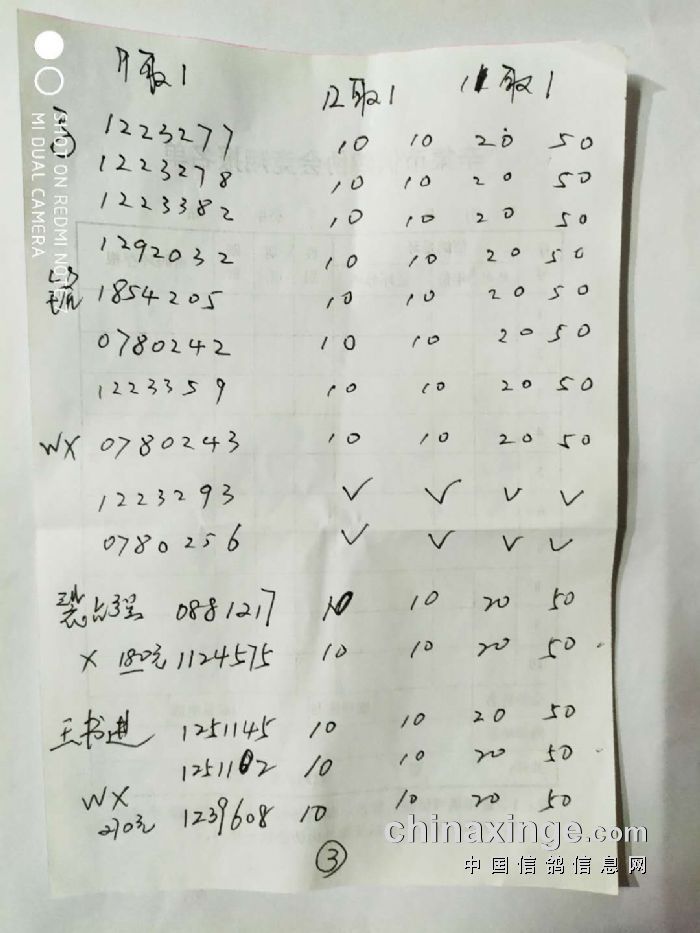 取1 12取1 11取1
1223277 10 10 20 50
1223278 10 10 20 50
1223382 10 10 20 50
1292032 10 10 20 50
1854205 10 10 20 50
0780242 10 10 20 50
1223359 10 10 20 50
WX 0780243 10 10 20 50
1223293 ✓ ✓ ✓ ✓
0780256 ✓ ✓ ✓ ✓
0881217 10 10 20 50
X 180元 1124575 10 10 20 50
王书进 1251145 10 10 20 50
1251102 10 10 20 50
WX 1239608 10 10 20 50
270元
③
SHOT ON REDMI
MI DUAL CAMERA
chinaxinge.com
中国信鸽信息网